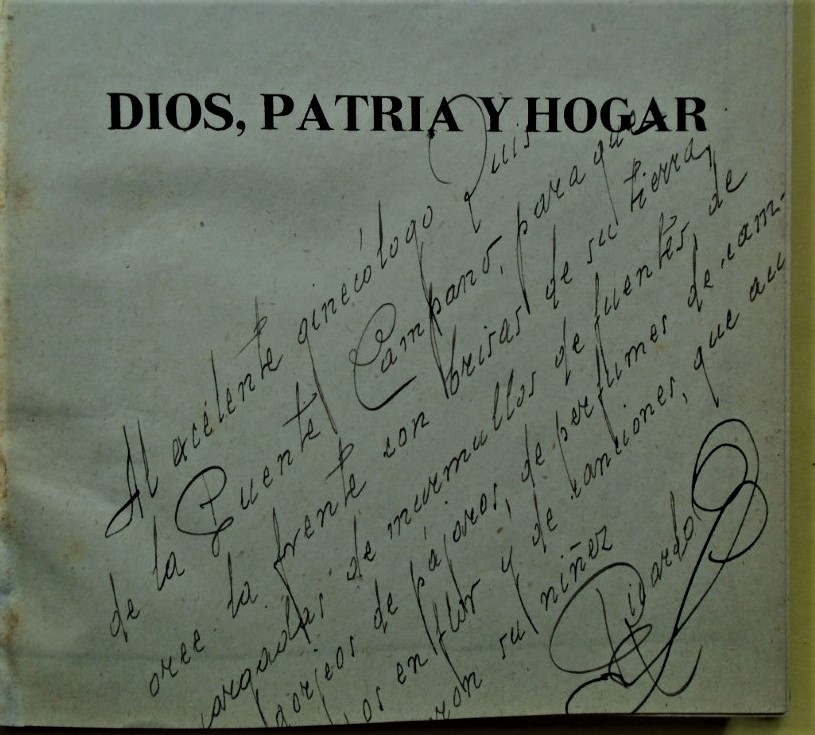 DIOS, PATRIA Y HOGAR
Al excelente ginecólogo Luis
de la Puente Campano, para que
oree la frente con brisas de su tierra,
cargadas de murmullos de fuentes, de
gorjeos de pájaros, de perfumes de cam-
pos en flor y de canciones, que acu
naron su niñez
Ricardo